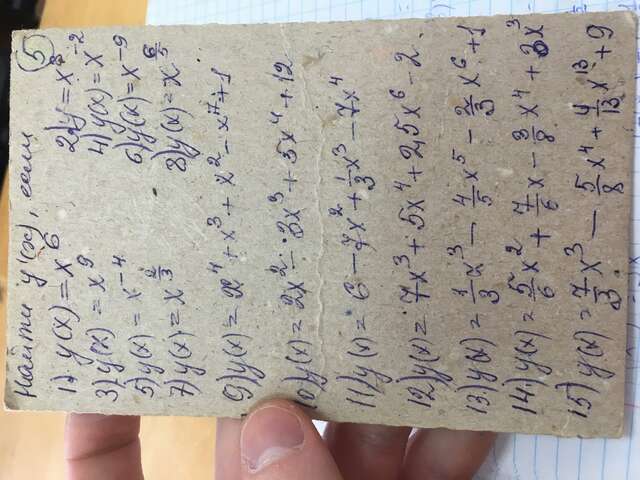 Найти y'(x), если (5)
1) y(x) = x⁶ 2) y = x⁸
3) y(x) = x⁹ 4) y(x) = x⁻²
5) y(x) = x⁻⁴ 6) y(x) = x⁻⁹
7) y(x) = x^(2/3) 8) y(x) = x^(6/5)
9) y(x) = x⁴ + x³ + x² - x⁷ + 1
10) y(x) = 2x² - 3x³ + 5x⁴ + 12
11) y(x) = 6 - 7x² + 1/3 x³ - 7x⁴
12) y(x) = 7x³ + 5x⁴ + 2,5x⁶ - 2
13) y(x) = 1/3 x³ - 4/5 x⁵ - 2/3 x⁶ + 1
14) y(x) = 5/6 x² + 7/6 x - 3/8 x⁴ + 3x³
15) y(x) = 7/3 x³ - 5/8 x⁴ + 4/13 x¹³ + 9